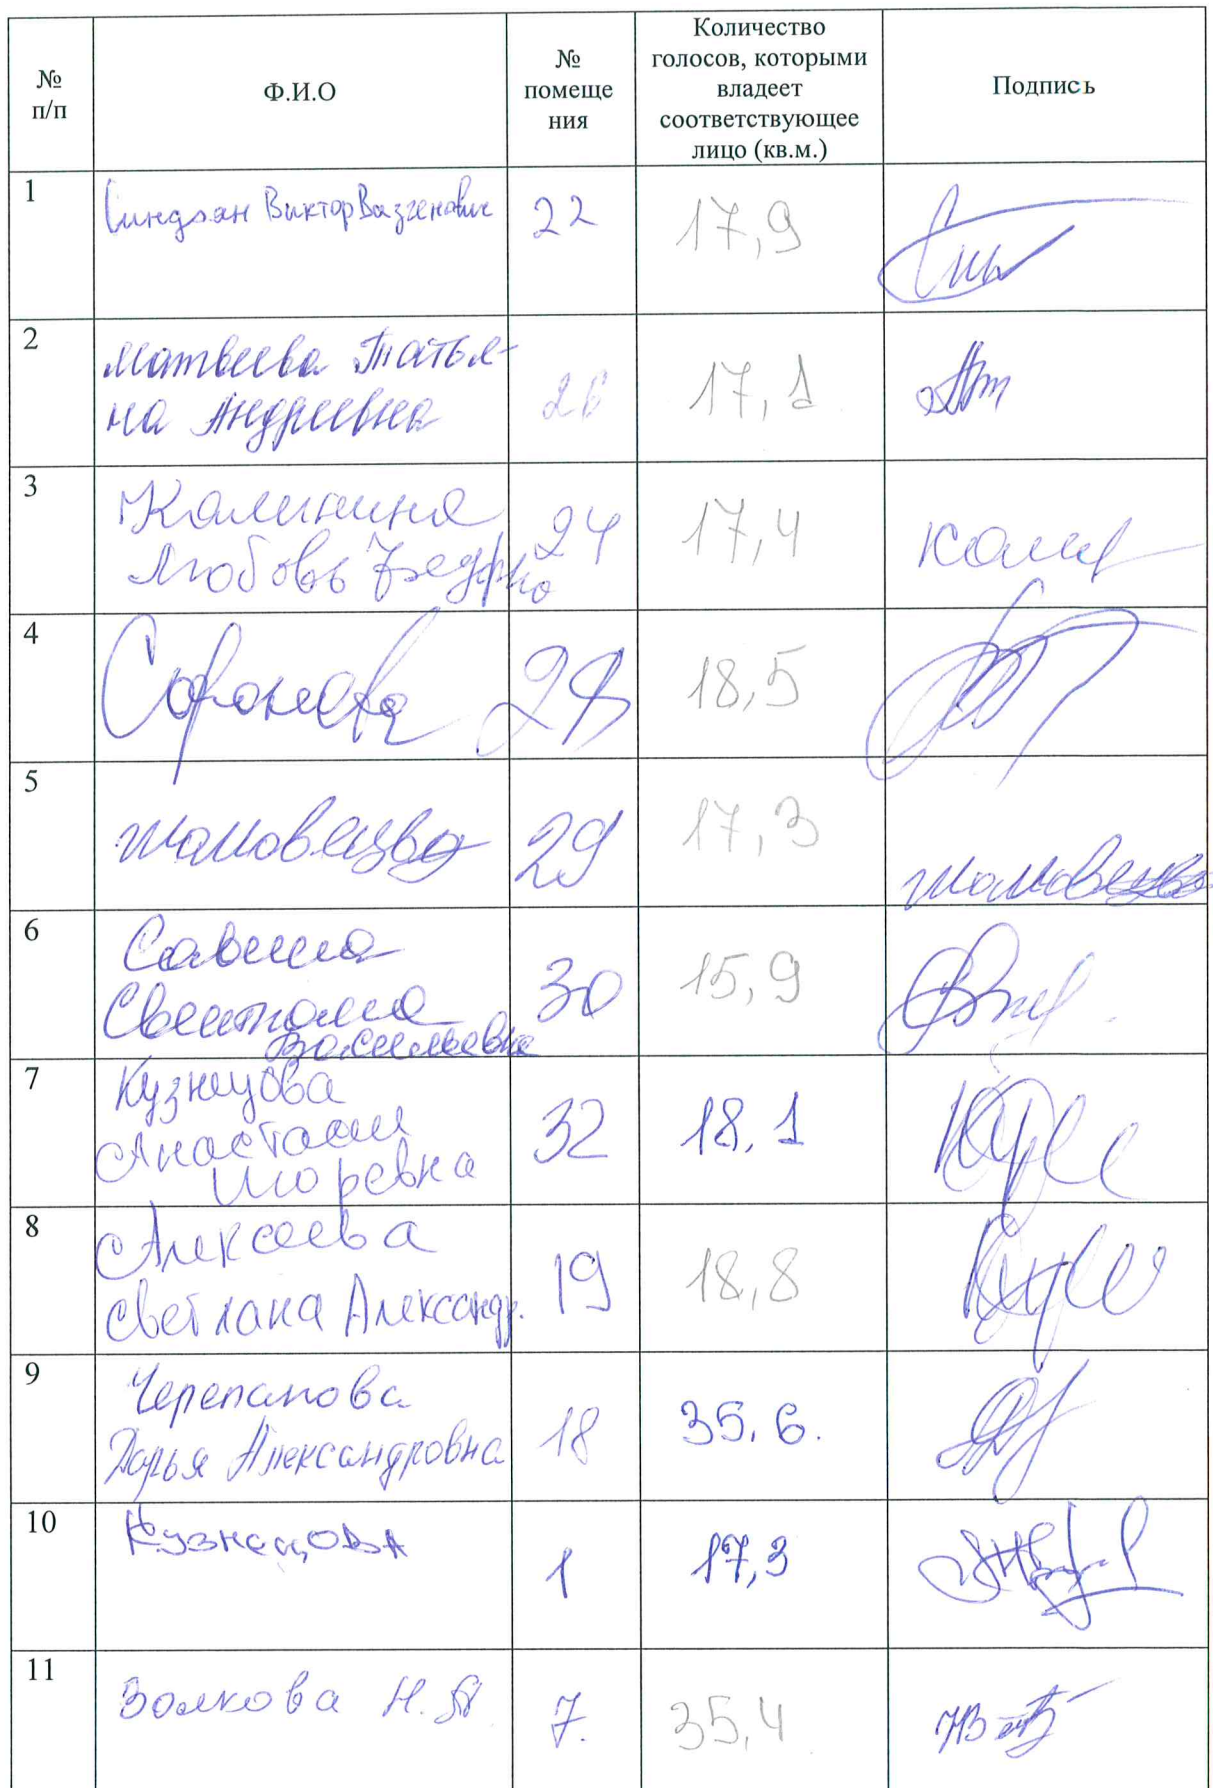 № п/п
Ф.И.О
№ помеще ния
Количество голосов, которыми владеет соответствующее лицо (кв.м.)
Подпись
1
Виктор Вазгенович
22
17,9
2
Матвеева Татья-
на Андреевна
26
17,1
3
Калинина
Любовь
24
17,4
Кали
4
18,5
5
29
17,3
6
Савина
Светлана
Васильевна
30
15,9
7
Кузнецова
Анастасия
Игоревна
32
18,1
8
Алексеева
Светлана Александр.
19
18,8
9
Черепанова
Дарья Александровна
18
35,6.
10
Кузнецова
1
17,3
11
Волкова Н.А
7.
35,4